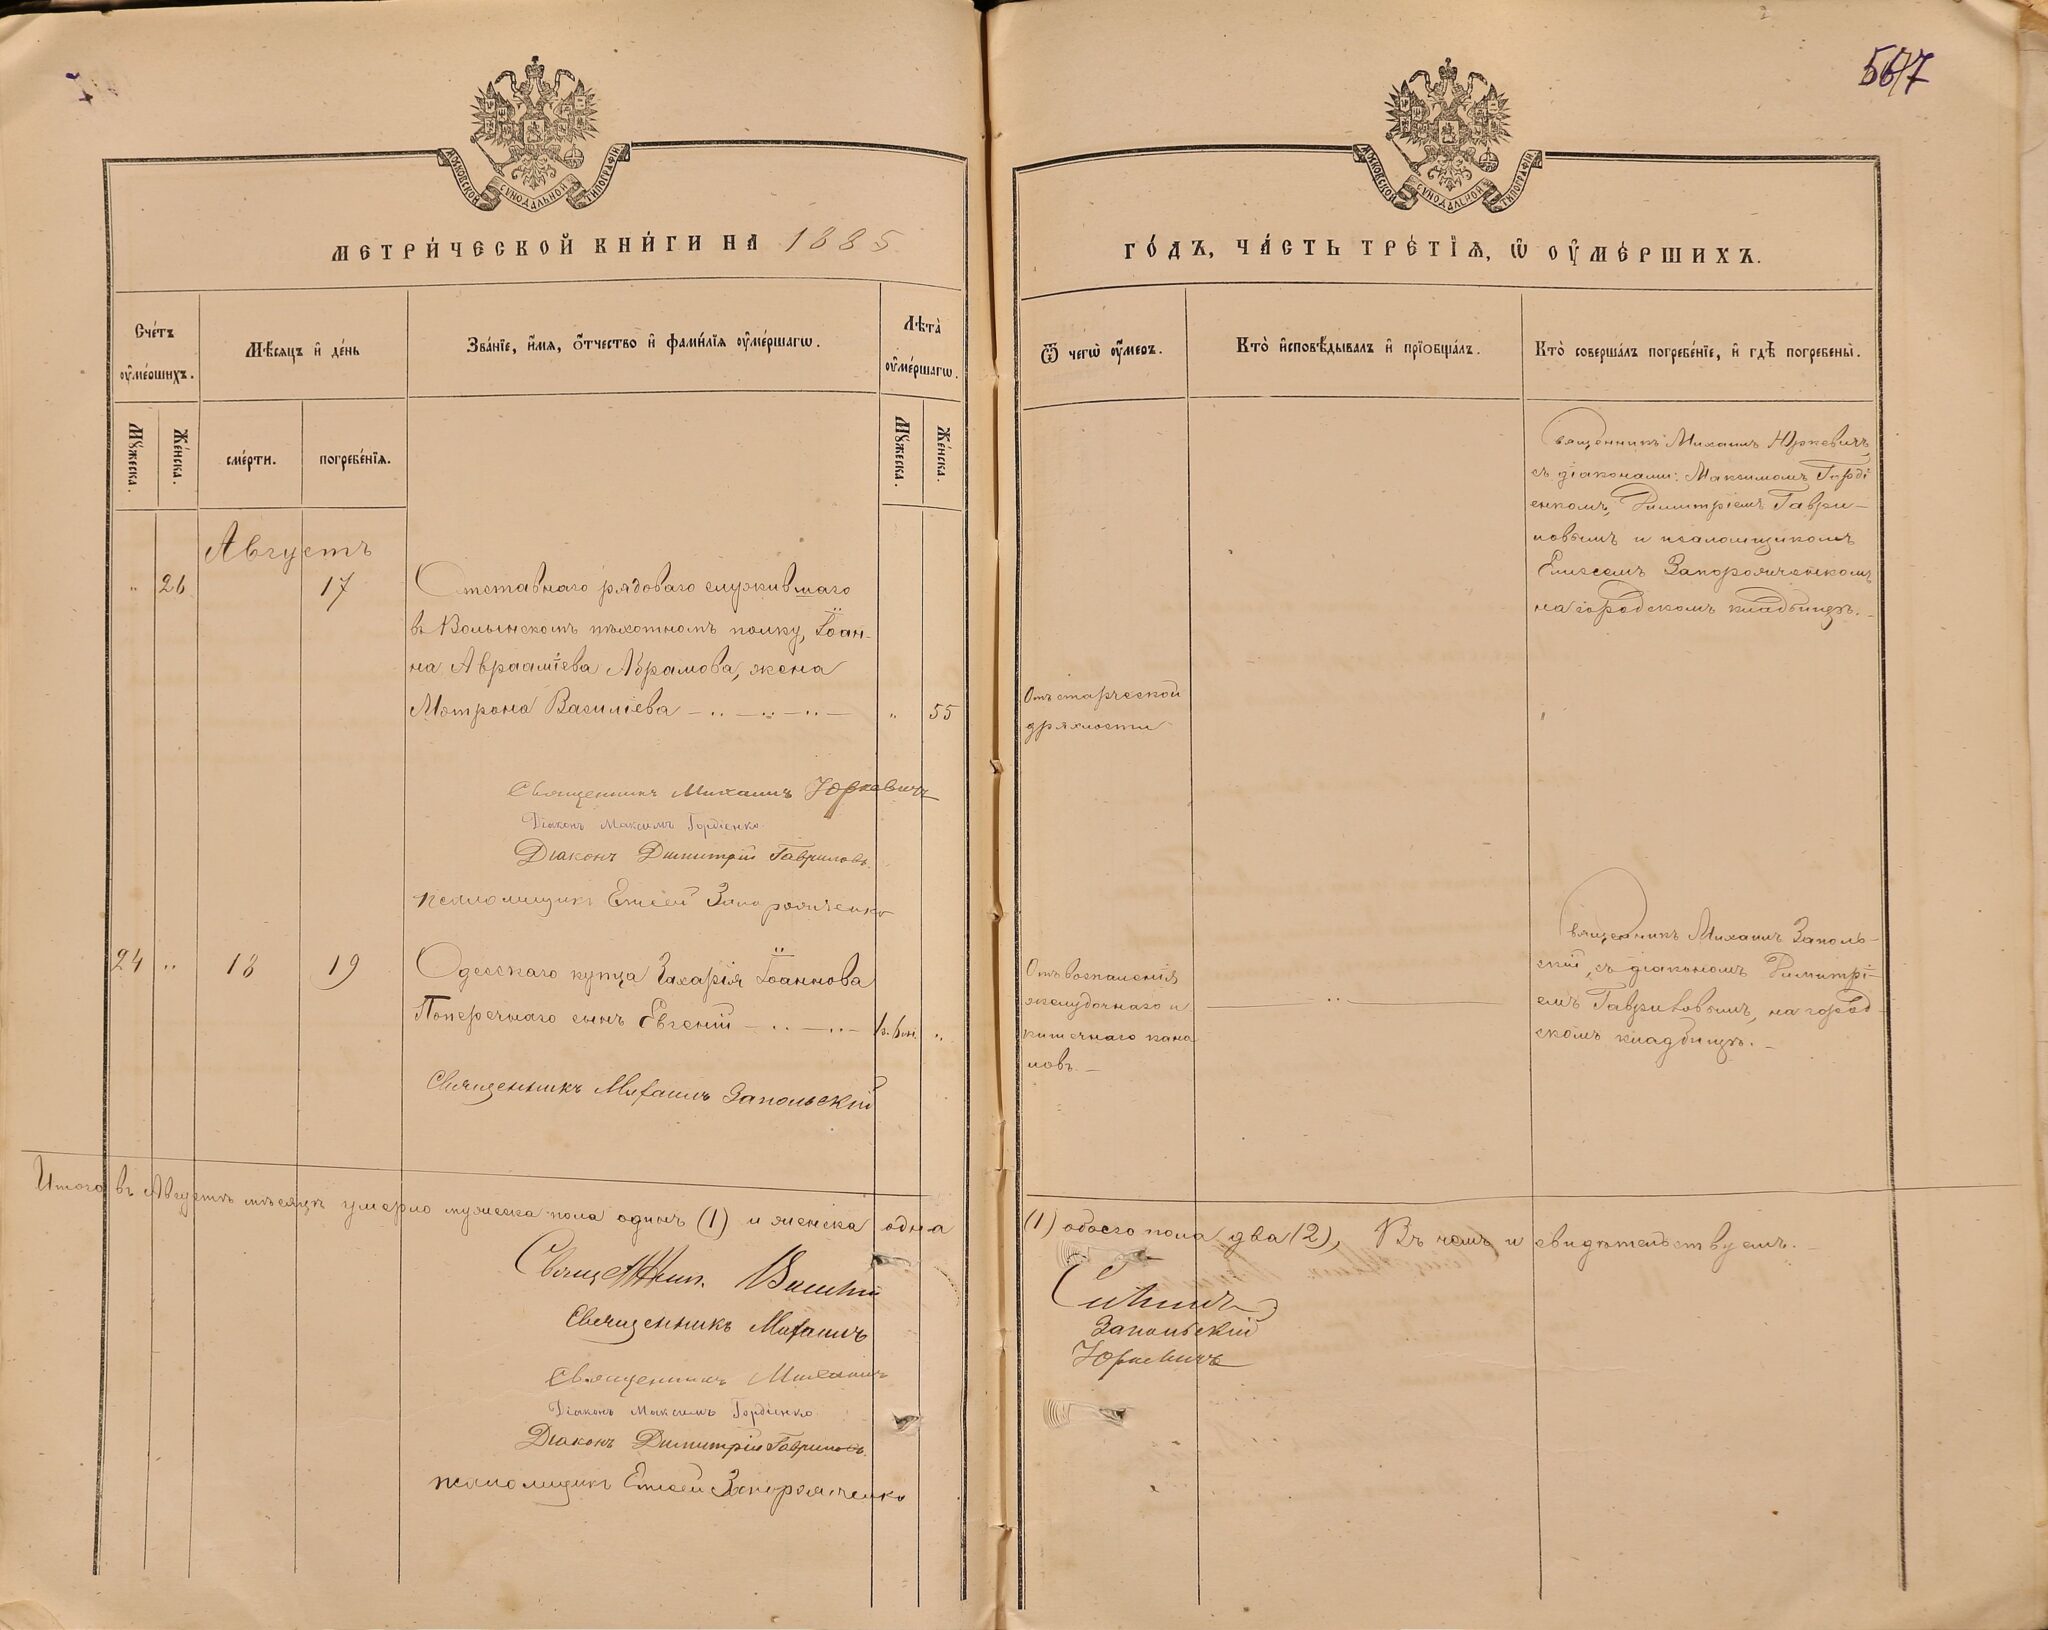 567
МОСКОВСКОЙ СѴНОДАЛЬНОЙ ТИПОГРАФІИ
МОСКОВСКОЙ СѴНОДАЛЬНОЙ ТИПОГРАФІИ
МЕТРИ́ЧЕСКОЙ КНИ́ГИ НА 1885
ГО́ДЪ, ЧА́СТЬ ТРЕ́ТІѦ, Ѡ҆ ОУ҆МЕ́РШИХЪ.
Сче́тъ оу҆ме́ршихъ.
Мѣ́сѧцъ и҆ де́нь
Зва́нїе, и҆́мѧ, о҆́тчество и҆ фами́лїѧ оу҆ме́ршагѡ.
Лѣ́та оу҆ме́ршагѡ.
Ѿ чегѡ̀ оу҆́меръ.
Кто̀ и҆сповѣ́дывалъ и҆ прїобща́лъ.
Кто̀ соверша́лъ погребе́нїе, и҆ гдѣ̀ погребены̀.
Мꙋ́жеска.
Же́нска.
сме́рти.
погребе́нїѧ.
Мꙋ́жеска.
Же́нска.
Августъ
" 26 17
Отставнаго рядоваго служившаго
въ Волынскомъ пѣхотномъ полку, Іоан-
на Авраамiева Абрамова, жена
Матрона Василіева " 55
Отъ старческой
дряхлости
Священникъ Михаилъ Юркевичъ
съ діаконами: Максимомъ Горді
енкомъ, Димитріемъ Гаври-
ловымъ и псаломщикомъ
Елисеемъ Запорожченкомъ
на городскомъ кладбищѣ.
Священникъ Михаилъ Юркевичъ
Діаконъ Максимъ Гордіенко.
Діаконъ Димитрій Гавриловъ.
псаломщикъ Елисей Запорожченко
24 " 18 19
Одесскаго купца Захарія Іоаннова
Поперечнаго сынъ Евгеній 1 г. 6 м. "
Отъ воспаленія
желудочнаго и
кишечнаго кана
ловъ.
Священникъ Михаилъ Заполь-
скій, съ діакономъ Димитрі-
емъ Гавриловымъ, на город-
скомъ кладбищѣ.
Священникъ Михаилъ Запольскій
Итого въ Августѣ мѣсяцѣ умерло мужеска пола одинъ (1) и женска одна
(1) обоего пола два (2), Въ чемъ и свидѣтельствуемъ.
Священник Василій
Священникъ Михаилъ Запольскій
Священникъ Михаилъ Юркевичъ
Діаконъ Максимъ Гордіенко.
Діаконъ Димитрій Гавриловъ.
псаломщикъ Елисей Запорожченко